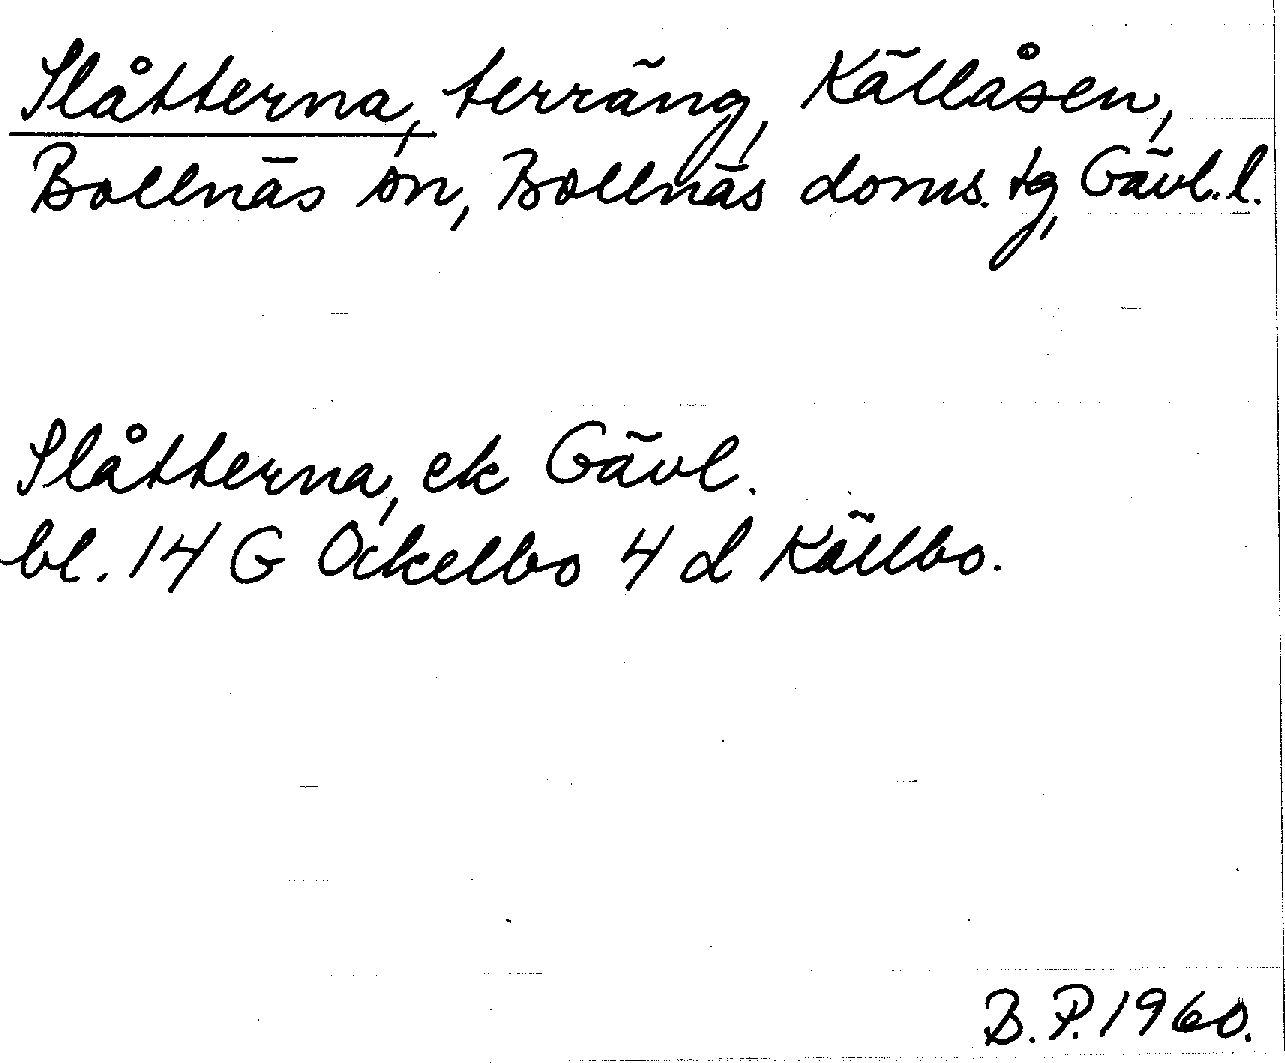 Slåtterna, terräng, Källåsen,
Bollnäs sn, Bollnäs doms. tg, Gävl. l.
Slåtterna, ek Gävl.
bl. 14 G Ockelbo 4 d Källbo.
B. P. 1960.